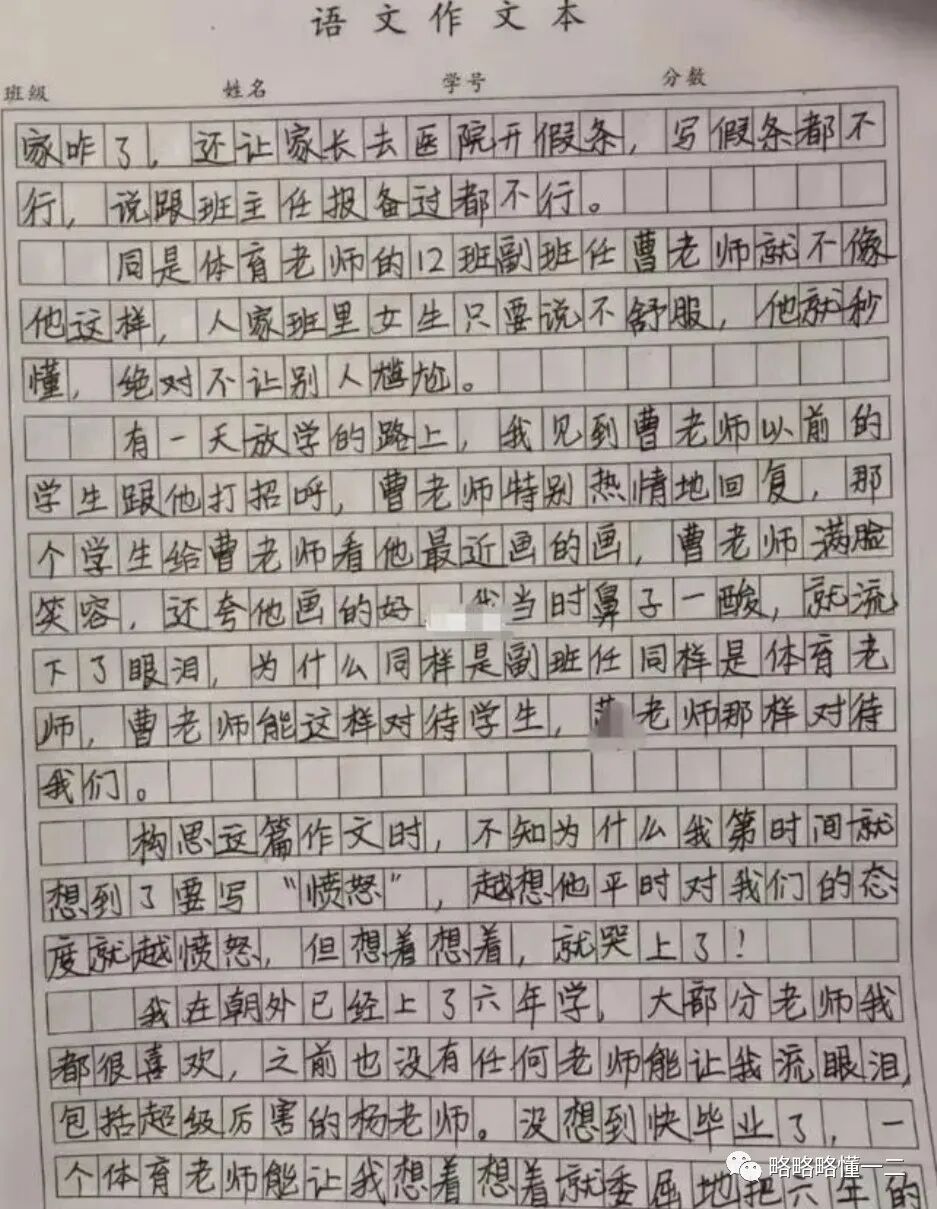 语文作文本
班级 姓名 学号 分数
家咋了，还让家长去医院开假条，写假条都不
行，说跟班主任报备过都不行。
同是体育老师的12班副班任曹老师就不像
他这样，人家班里女生只要说不舒服，他就秒
懂，绝对不让别人尴尬。
有一天放学的路上，我见到曹老师以前的
学生跟他打招呼，曹老师特别热情地回复，那
个学生给曹老师看他最近画的画，曹老师满脸
笑容，还夸他画的好 我当时鼻子一酸，就流
下了眼泪，为什么同样是副班任同样是体育老
师，曹老师能这样对待学生，老师那样对待
我们。
构思这篇作文时，不知为什么我第时间就
想到了要写“愤怒”，越想他平时对我们的态
度就越愤怒，但想着想着，就哭上了！
我在朝外已经上了六年学，大部分老师我
都很喜欢，之前也没有任何老师能让我流眼泪，
包括超级厉害的杨老师。没想到快毕业了，一
个体育老师能让我想着想着就委屈地把六年的
略略略懂一二